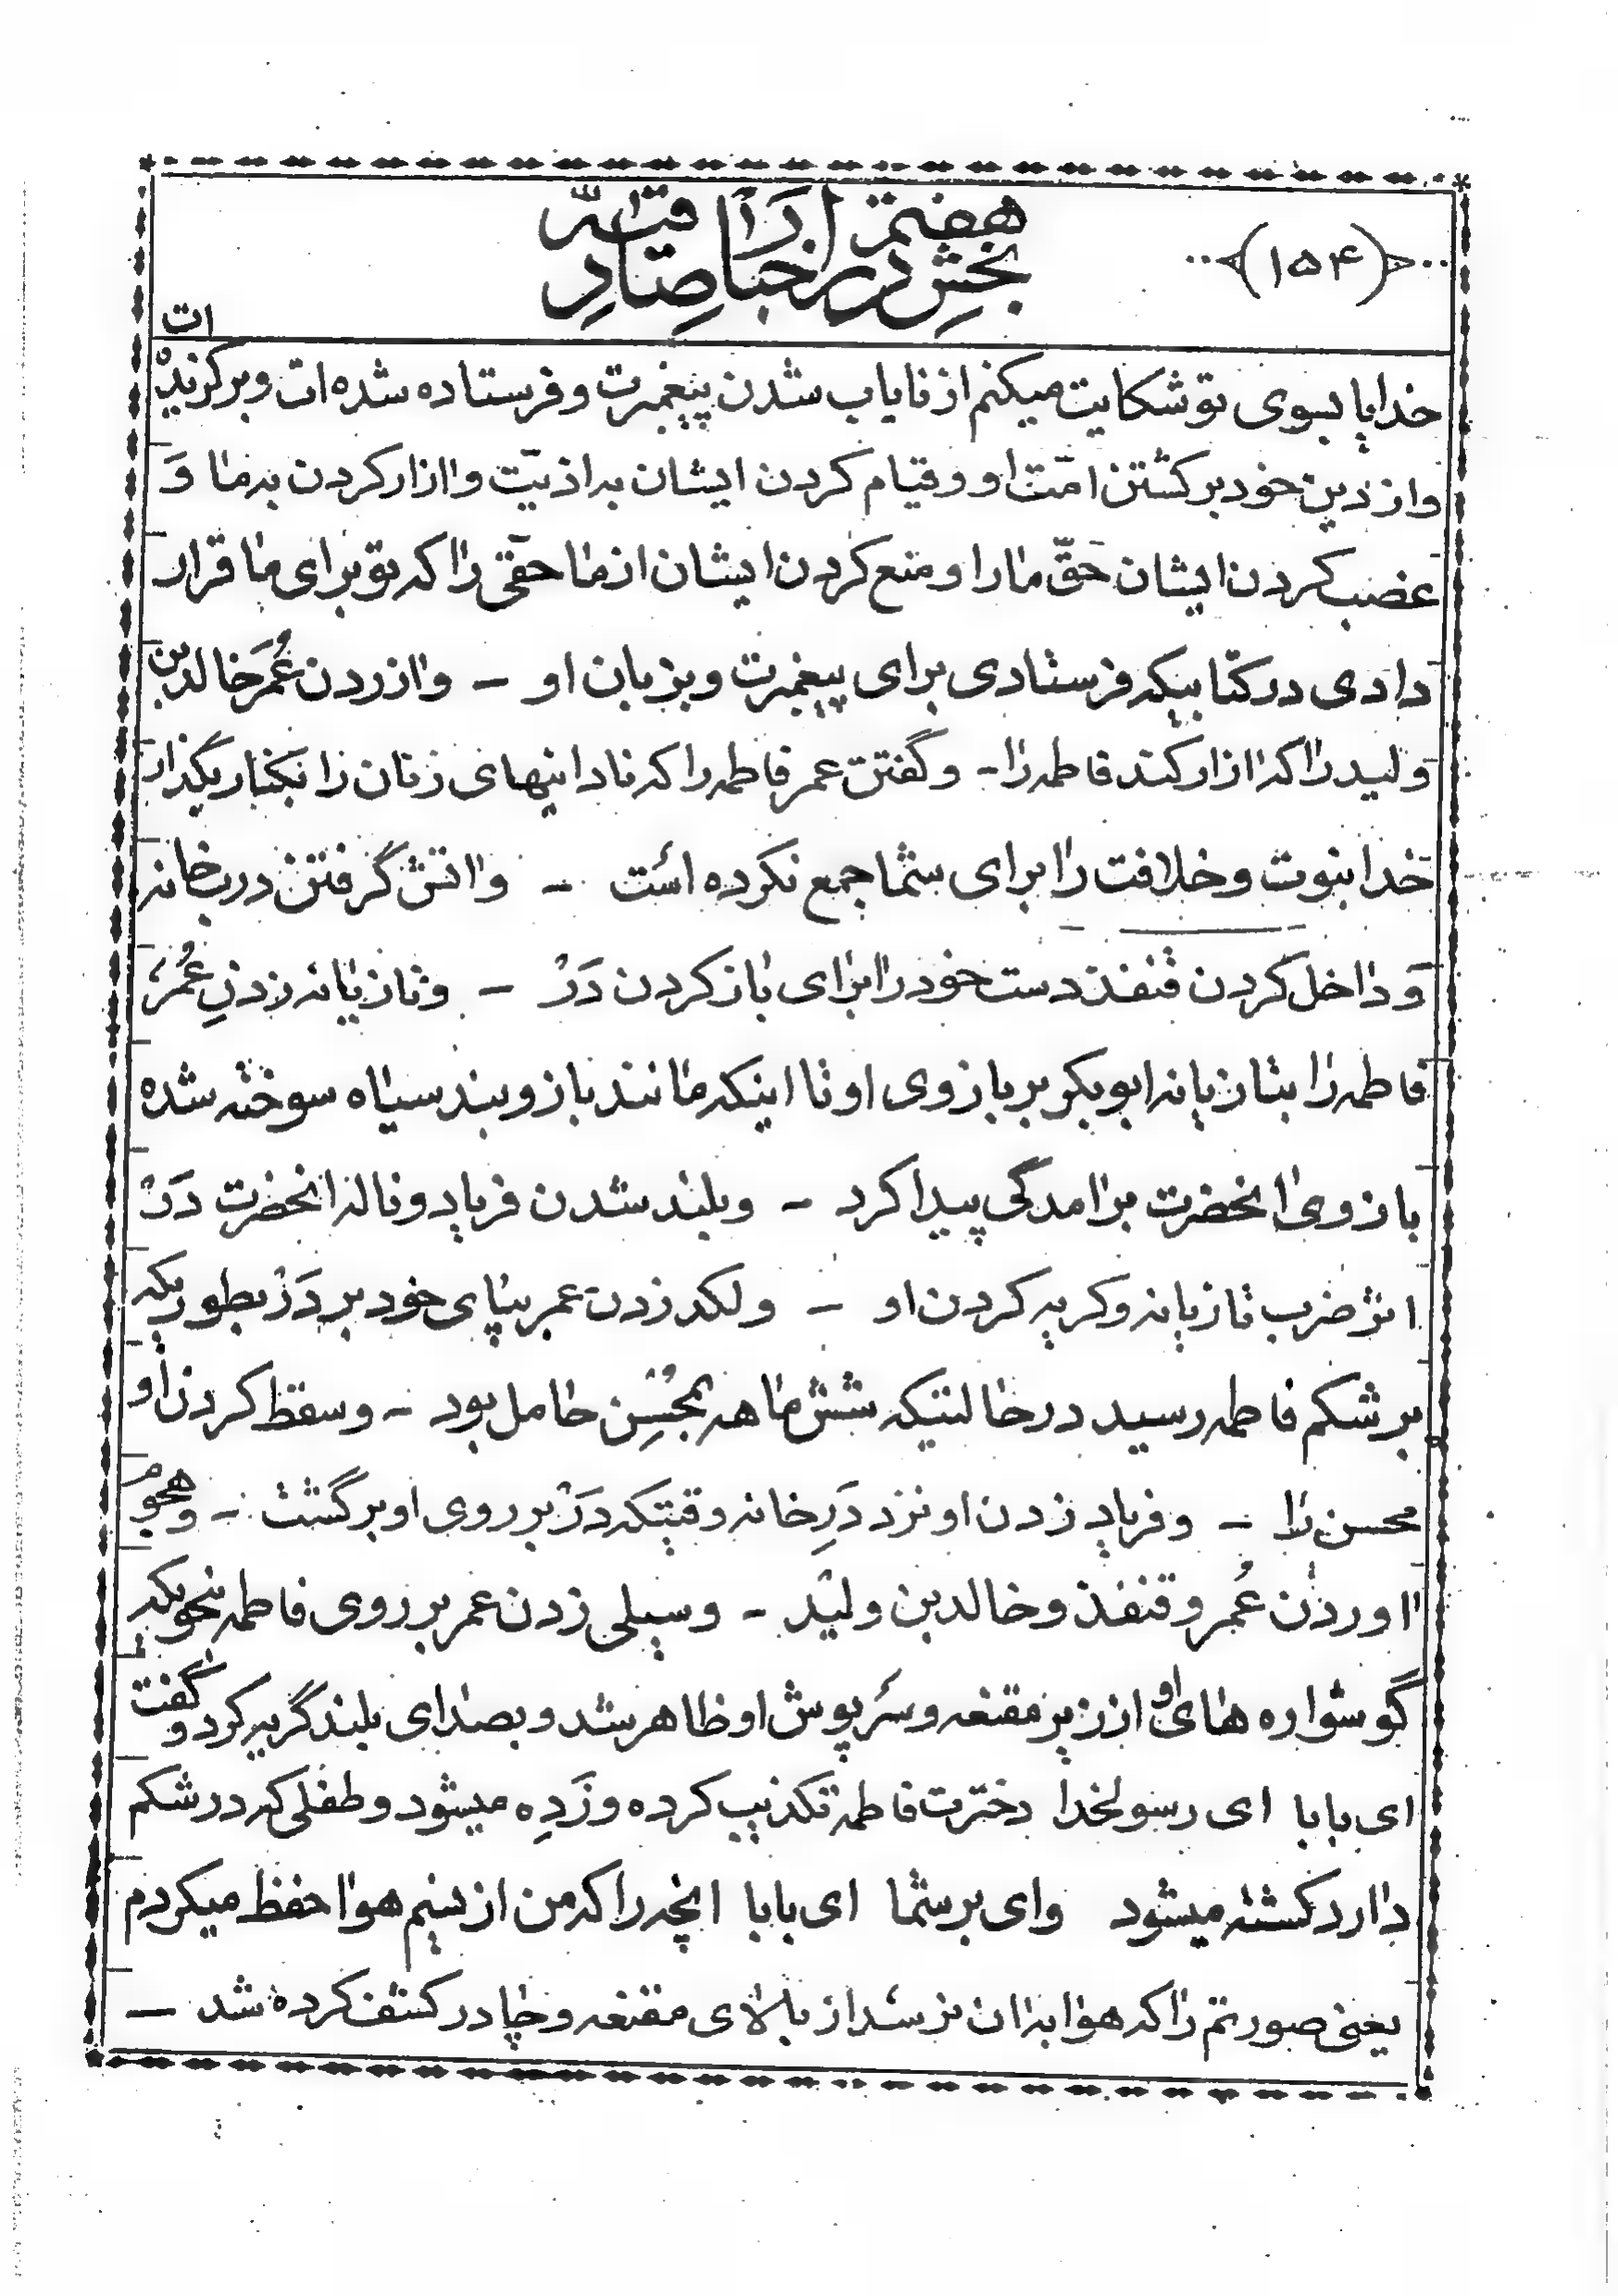 (۱۵۴)
بخش هفتم در اخبار صادقیه
خدایا بسوی تو شکایت میکنم از نایاب شدن پیغمبرت و فرستاده شده ات و برگزیده ات
و از دین خود برگشتن امّت او و قیام کردن ایشان به اذیّت و اازار کردن به ما وَ
غضب کردن ایشان حَقّ ما را و منع کردن ایشان از ما حقّی را که تو برای ما قرار
دادی در کتابیکه فرستادی برای پیغمبرت و بزبان او – و اازردن عُمَر خالد بن
ولید را که اازار کند فاطمه را – و گفتن عمر فاطمه را که نادانیهای زنان را بکنار بگذار
خدا نبوت و خلافت را برای شما جمع نکرده است – و ااتش گرفتن درب خانه
وَ داخل کردن قنفذ دست خود را برای باز کردن دَرْ – و تازیانه زدنِ عُمَر،
فاطمه را بتازیانه ابوبکر بر بازوی او تا اینکه مانند بازوبند سیاه سوخته شده
بازوی اانحضرت برامدگی پیدا کرد – و بلند شدن فریاد و ناله اانحضرت دَرْ
اثر ضرب تازیانه و گریه کردن او – و لگد زدن عمر بپای خود بر دَرْ بطوریکه
بر شکم فاطمه رسید در حالتیکه شش ماهه بمُحْسِن حامل بود – و سقط کردن او
محسن را – و فریاد زدن او نزد دَرِ خانه وقتیکه دَرْ بر روی او برگشت – و هجوم
ااوردن عُمر و قنفذ و خالد بن ولید – و سیلی زدن عمر بر روی فاطمه نحویکه
گوشواره های او از زیر مقنعه و سَرپوش او ظاهر شد و بصدای بلند گریه کرد و گفت
ای بابا ای رسولخدا دخترت فاطمه تکذیب کرده و زَدِه میشود و طفلی که در شکم
دارد کشته میشود وای بر شما ای بابا انچه را که من از نسیم هوا حفظ میکردم
یعنی صورتم را که هوا به اان نرسد از بالای مقنعه و چادر کشف کرده شد –